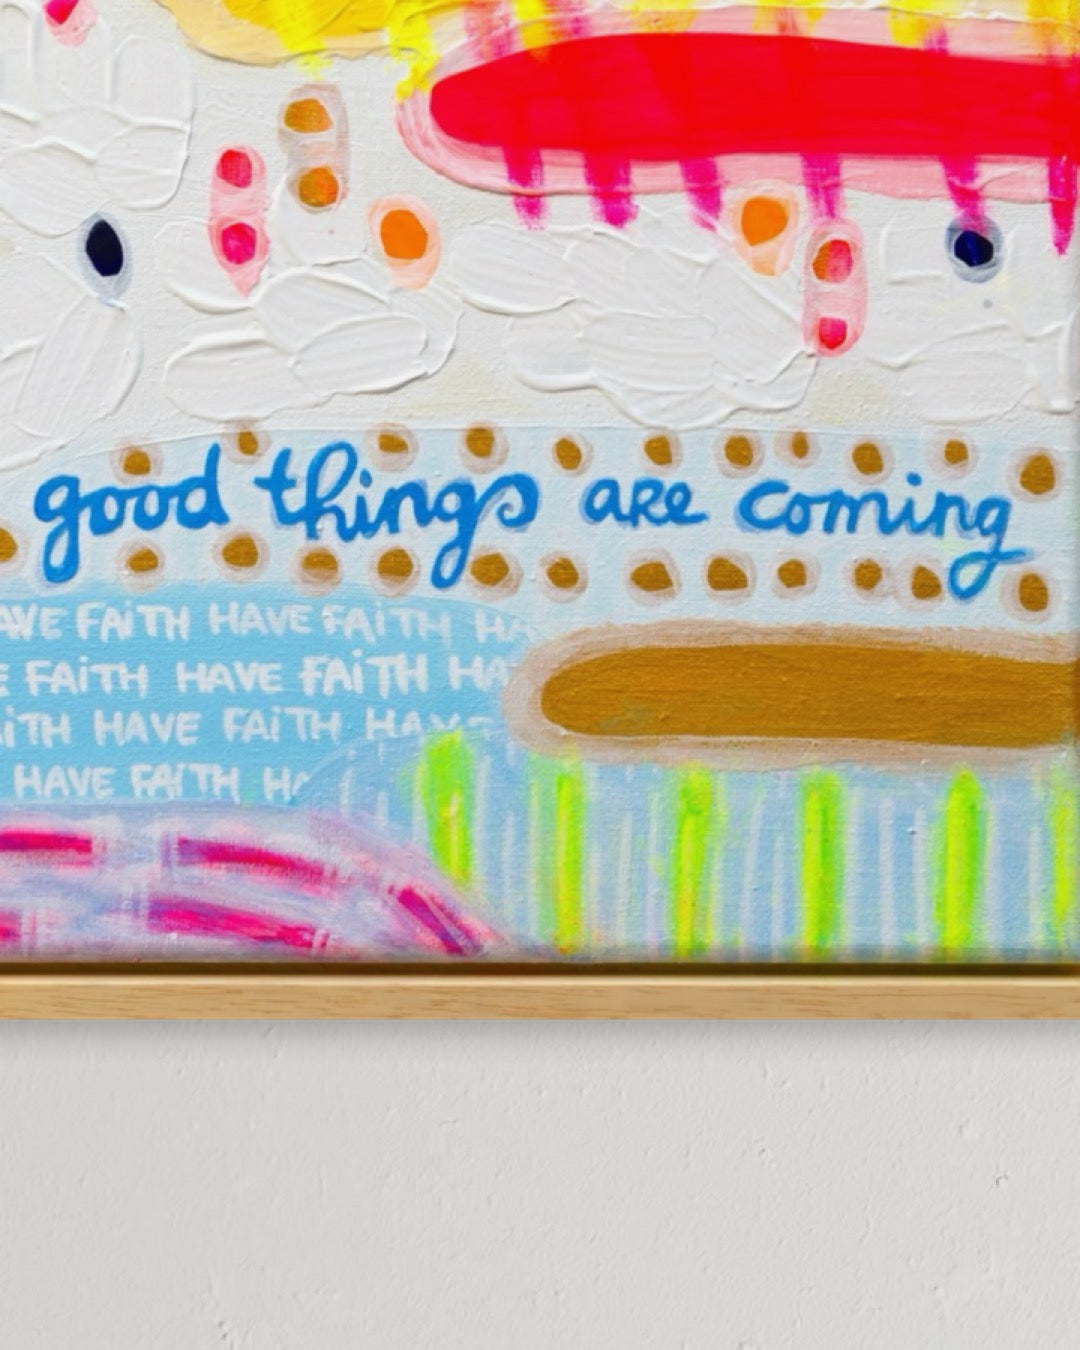 good things are coming
AVE FAiTH HAVE FAiTH HA
E FAiTH HAVE FAiTH HA
iTH HAVE FAiTH HAVE
HAVE FAiTH HA